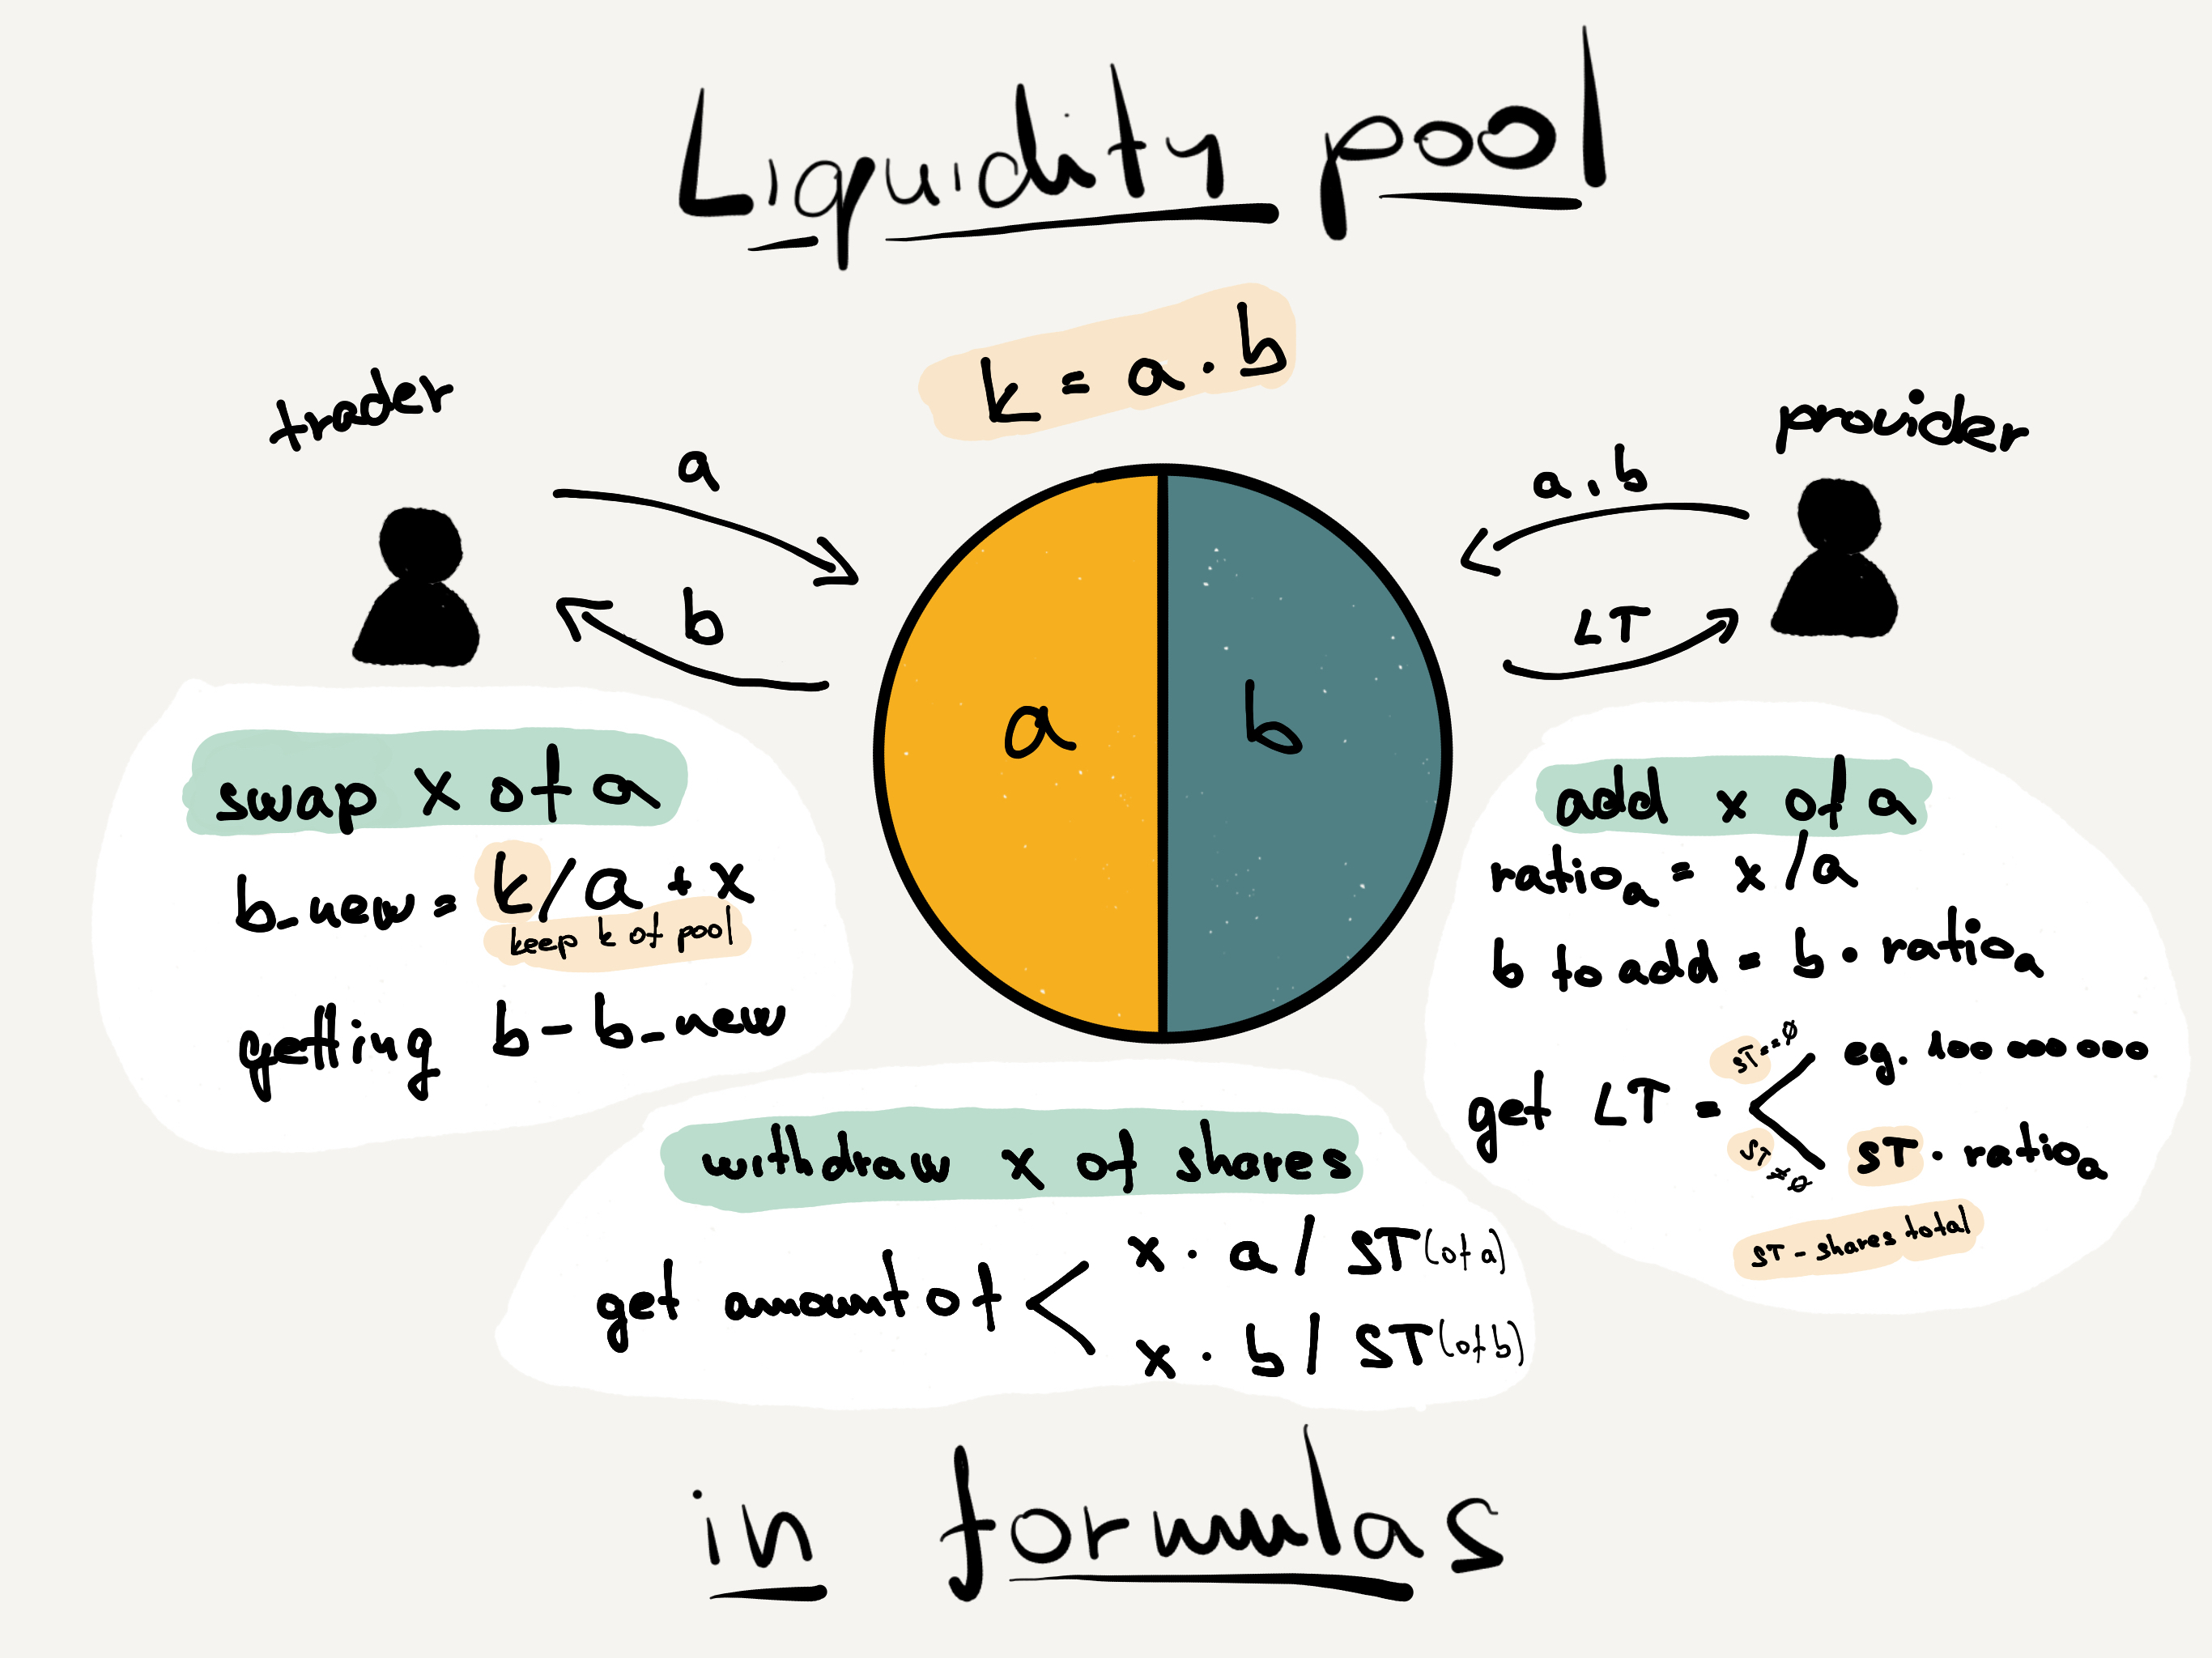 Liquidity pool
k = a . b
trader
provider
a
b
a, b
LT
a
b
swap x of a
b_new = k / a + x
keep k of pool
getting b - b_new
add x of a
ratioₐ = x / a
b to add = b • ratioₐ
get LT =
ST == 0
eg. 100 000 000
ST ≠ 0
ST · ratioₐ
ST - shares total
withdraw x of shares
get amount of
x · a / ST (of a)
x · b / ST (of b)
in formulas